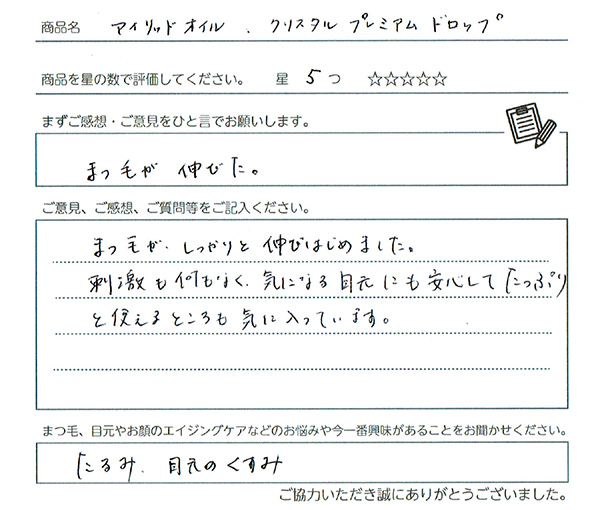 商品名 アイリッドオイル 、クリスタル プレミアム ドロップ
商品を星の数で評価してください。 星 5つ ☆☆☆☆☆
まずご感想・ご意見をひと言でお願いします。
まつ毛が 伸びた。
ご意見、ご感想、ご質問等をご記入ください。
まつ毛が、しっかりと 伸びはじめました。
刺激も何もなく、気になる目元にも安心してたっぷり
と使えるところも気に入っています。
まつ毛、目元やお顔のエイジングケアなどのお悩みや今一番興味があることをお聞かせください。
たるみ、目元のくすみ
ご協力いただき誠にありがとうございました。